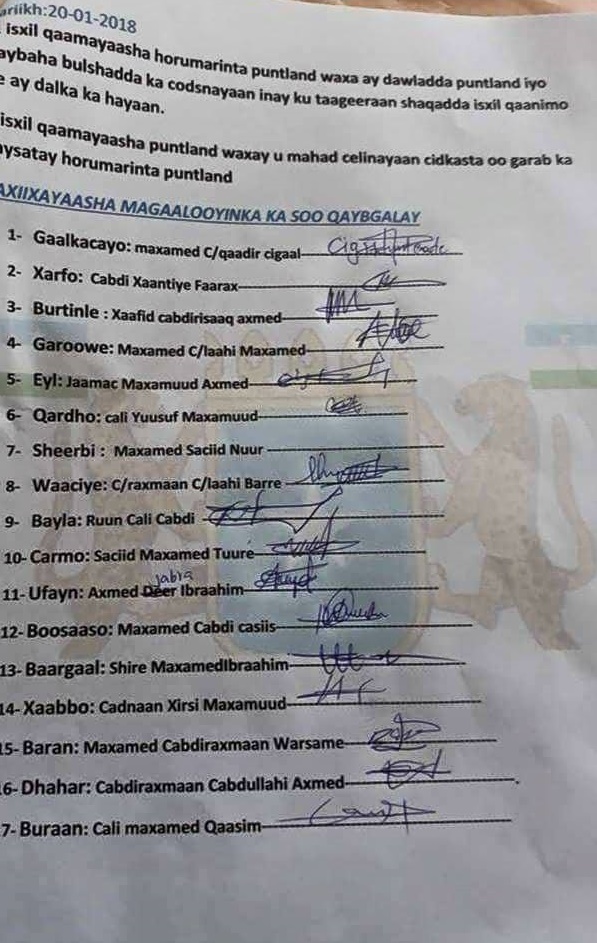 ariikh:20-01-2018
isxil qaamayaasha horumarinta puntland waxa ay dawladda puntland iyo
aybaha bulshadda ka codsnayaan inay ku taageeraan shaqadda isxil qaanimo
e ay dalka ka hayaan.
isxil qaamayaasha puntland waxay u mahad celinayaan cidkasta oo garab ka
aysatay horumarinta puntland
AXIIXAYAASHA MAGAALOOYINKA KA SOO QAYBGALAY
1- Gaalkacayo: maxamed C/qaadir cigaal
2- Xarfo: Cabdi Xaantiye Faarax
3- Burtinle : Xaafid cabdirisaaq axmed
4- Garoowe: Maxamed C/laahi Maxamed
5- Eyl: Jaamac Maxamuud Axmed
6- Qardho: cali Yuusuf Maxamuud
7- Sheerbi : Maxamed Saciid Nuur
8- Waaciye: C/raxmaan C/laahi Barre
9- Bayla: Ruun Cali Cabdi
10- Carmo: Saciid Maxamed Tuure
jabra
11- Ufayn: Axmed Deer Ibraahim
12- Boosaaso: Maxamed Cabdi casiis
13- Baargaal: Shire MaxamedIbraahim
14- Xaabbo: Cadnaan Xirsi Maxamuud
15- Baran: Maxamed Cabdiraxmaan Warsame
6- Dhahar: Cabdiraxmaan Cabdullahi Axmed
7- Buraan: Cali maxamed Qaasim